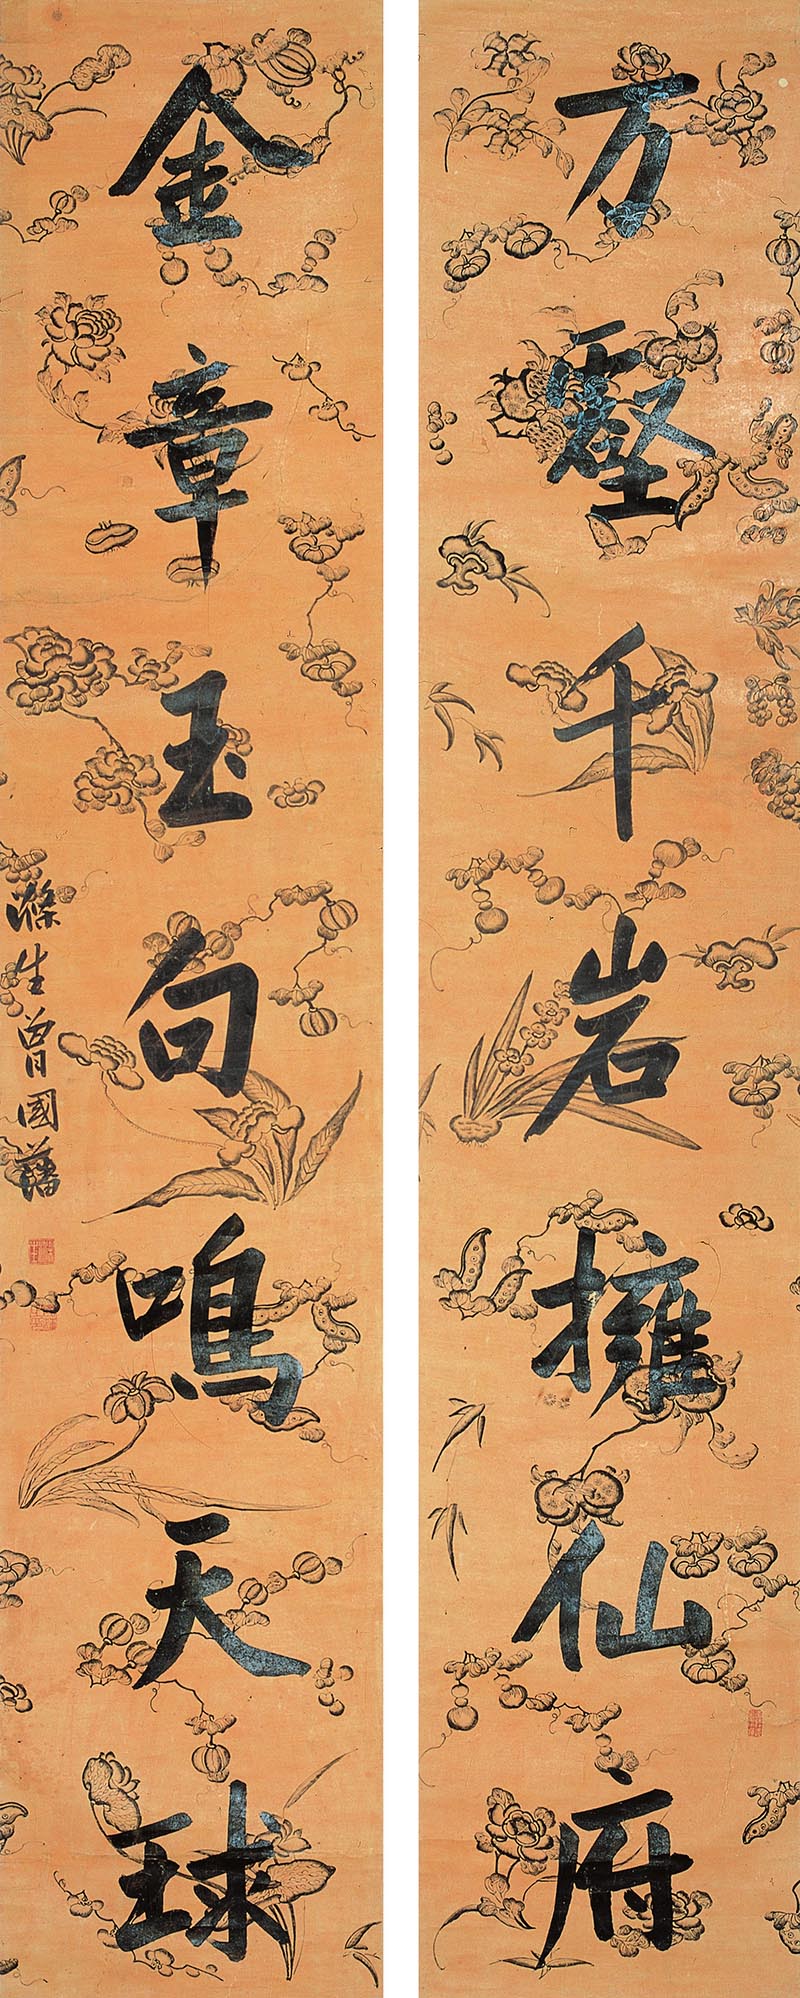 万壑千岩擁仙府
金章玉句鳴天球
滌生曾國藩